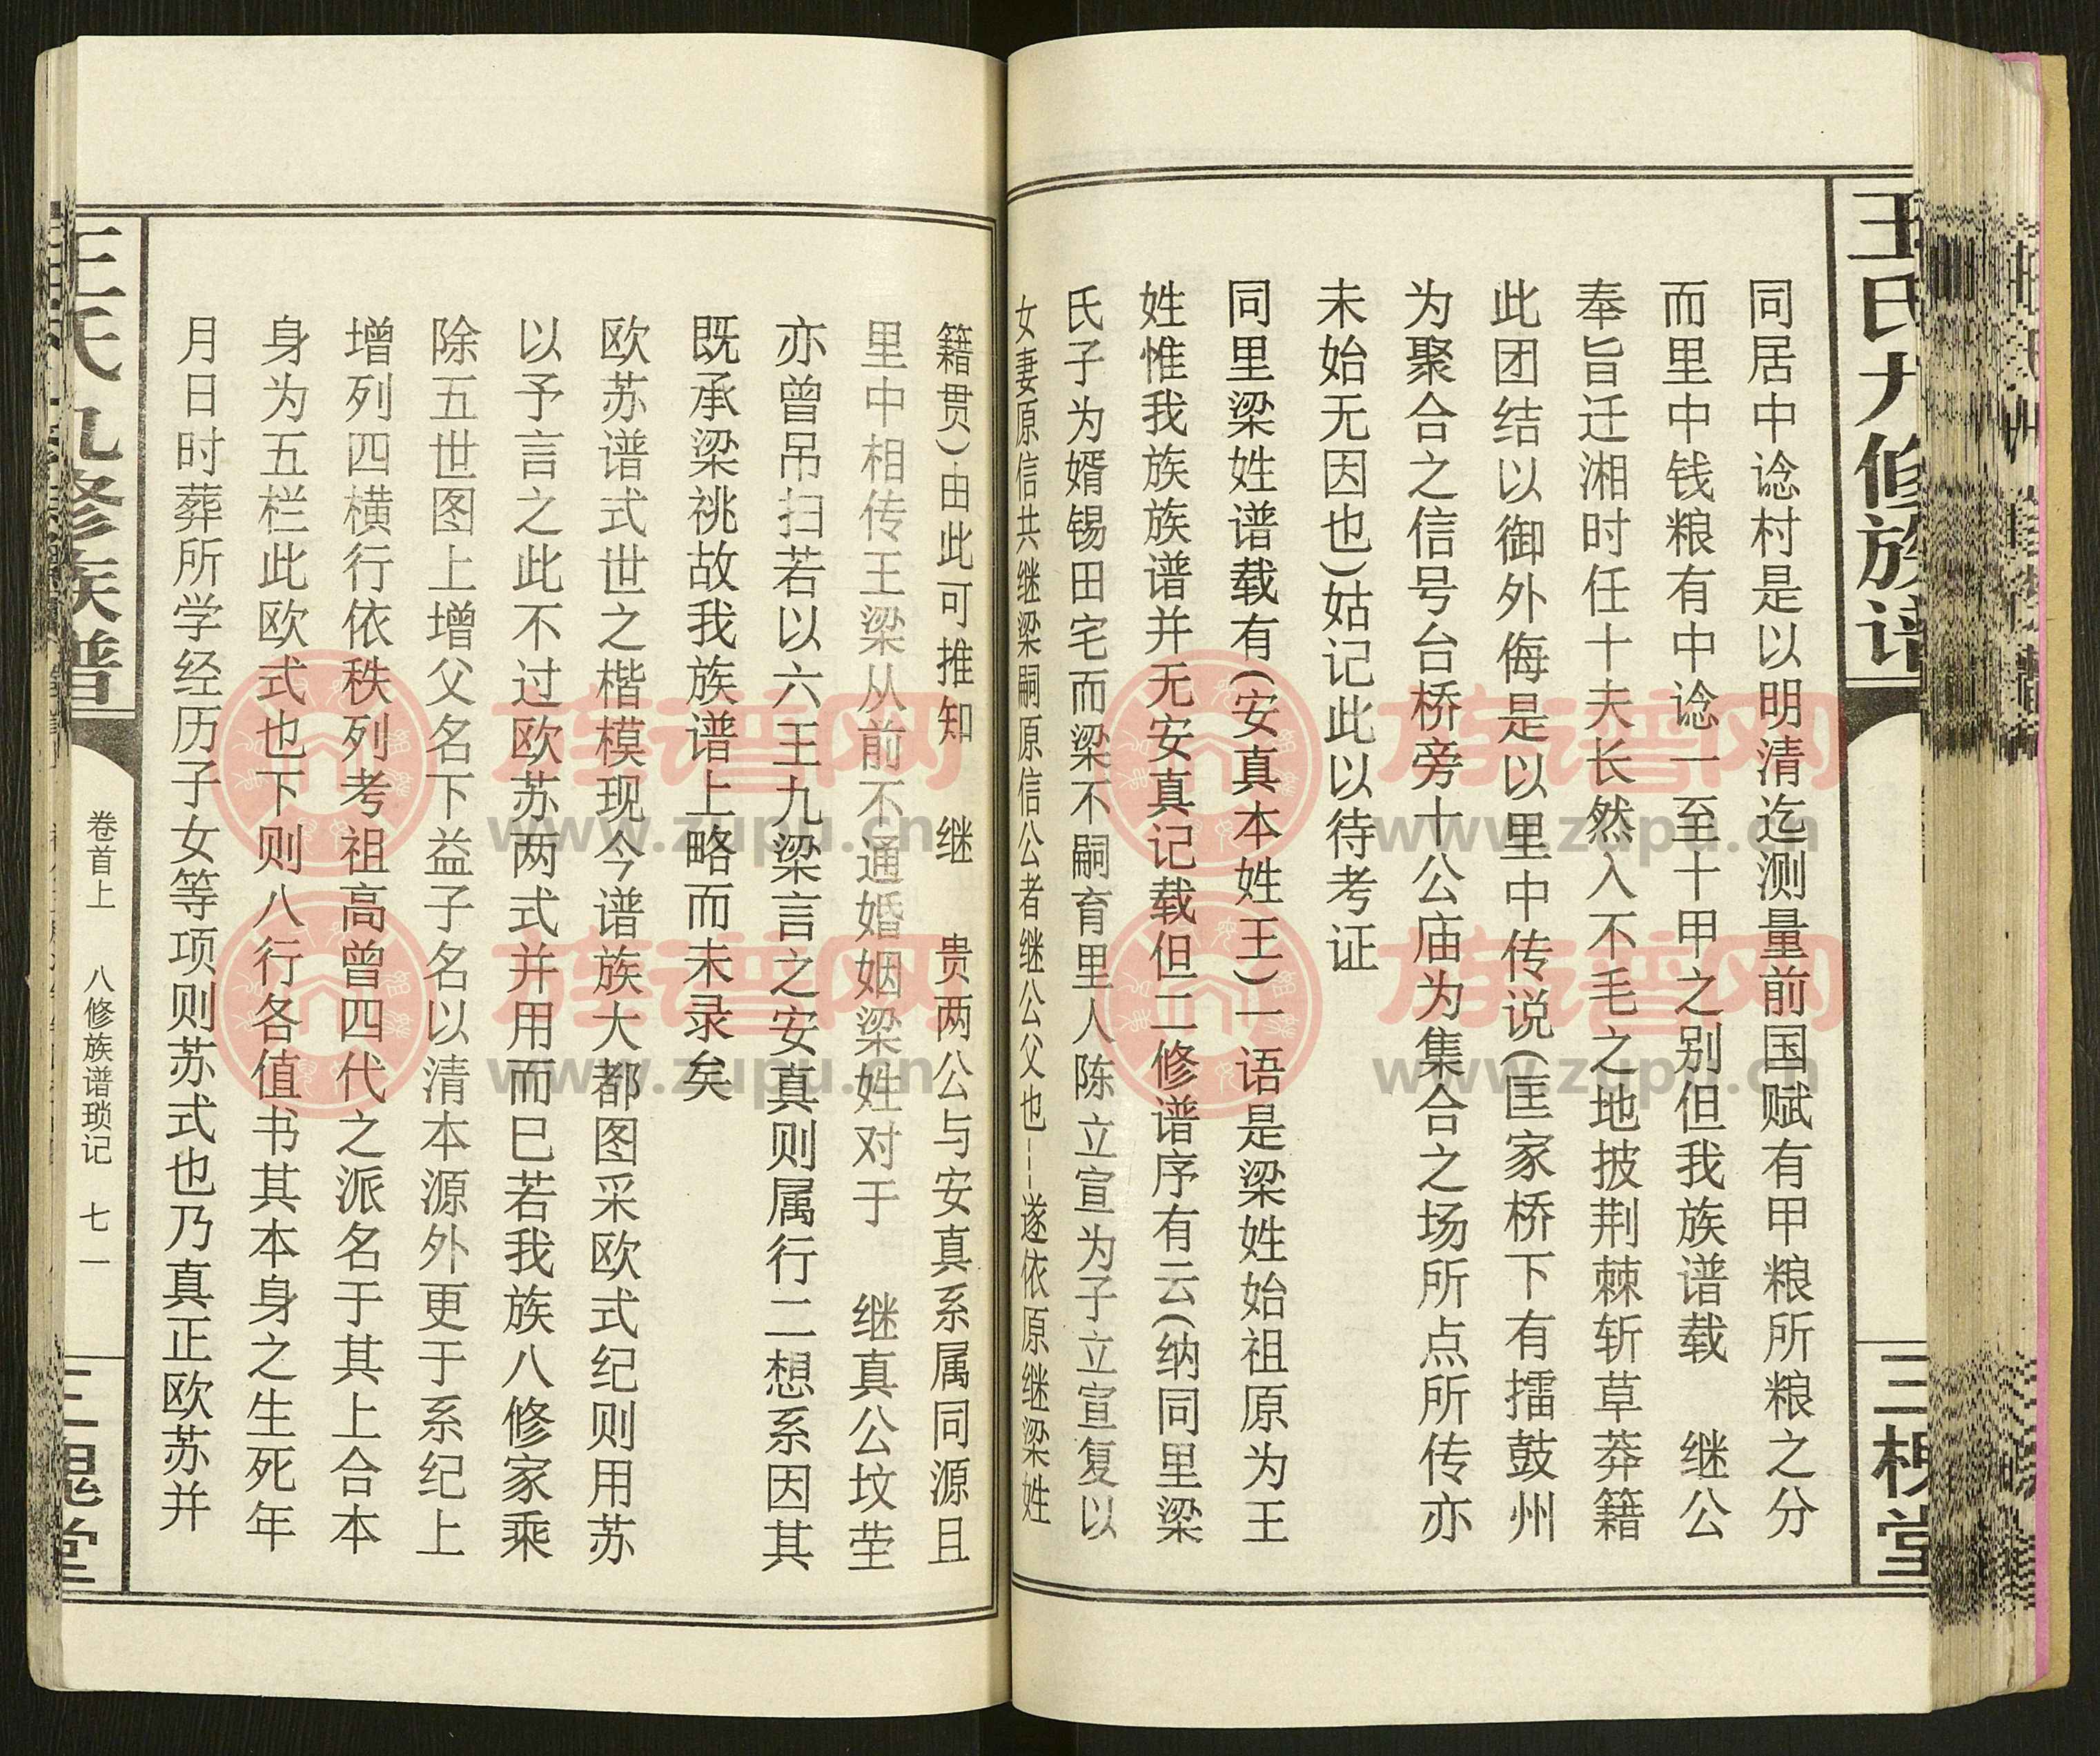 王氏九修族谱
三槐堂
同居中谂村是以明清迄测量前国赋有甲粮所粮之分
而里中钱粮有中谂一至十甲之别但我族谱载 继公
奉旨迁湘时任十夫长然入不毛之地披荆棘斩草莽籍
此团结以御外侮是以里中传说(匡家桥下有擂鼓州
为聚合之信号台桥旁十公庙为集合之场所点所传亦
未始无因也)姑记此以待考证
同里梁姓谱载有(安真本姓王)一语是梁姓始祖原为王
姓惟我族族谱并无安真记载但二修谱序有云(纳同里梁
氏子为婿锡田宅而梁不嗣育里人陈立宣为子立宣复以
女妻原信共继梁嗣原信公者继公父也---遂依原继梁姓
籍贯)由此可推知 继 贵两公与安真系属同源且
里中相传王梁从前不通婚姻梁姓对于 继真公坟茔
亦曾吊扫若以六王九梁言之安真则属行二想系因其
既承梁祧故我族谱上略而未录矣
欧苏谱式世之楷模现今谱族大都图采欧式纪则用苏
以予言之此不过欧苏两式并用而巳若我族八修家乘
除五世图上增父名下益子名以清本源外更于系纪上
增列四横行依秩列考祖高曾四代之派名于其上合本
身为五栏此欧式也下则八行各值书其本身之生死年
月日时葬所学经历子女等项则苏式也乃真正欧苏并
王氏九修族谱
卷首上 八修族谱琐记 七一
三槐堂
族谱网
www.zupu.cn
族谱网
www.zupu.cn
族谱网
www.zupu.cn
族谱网
www.zupu.cn